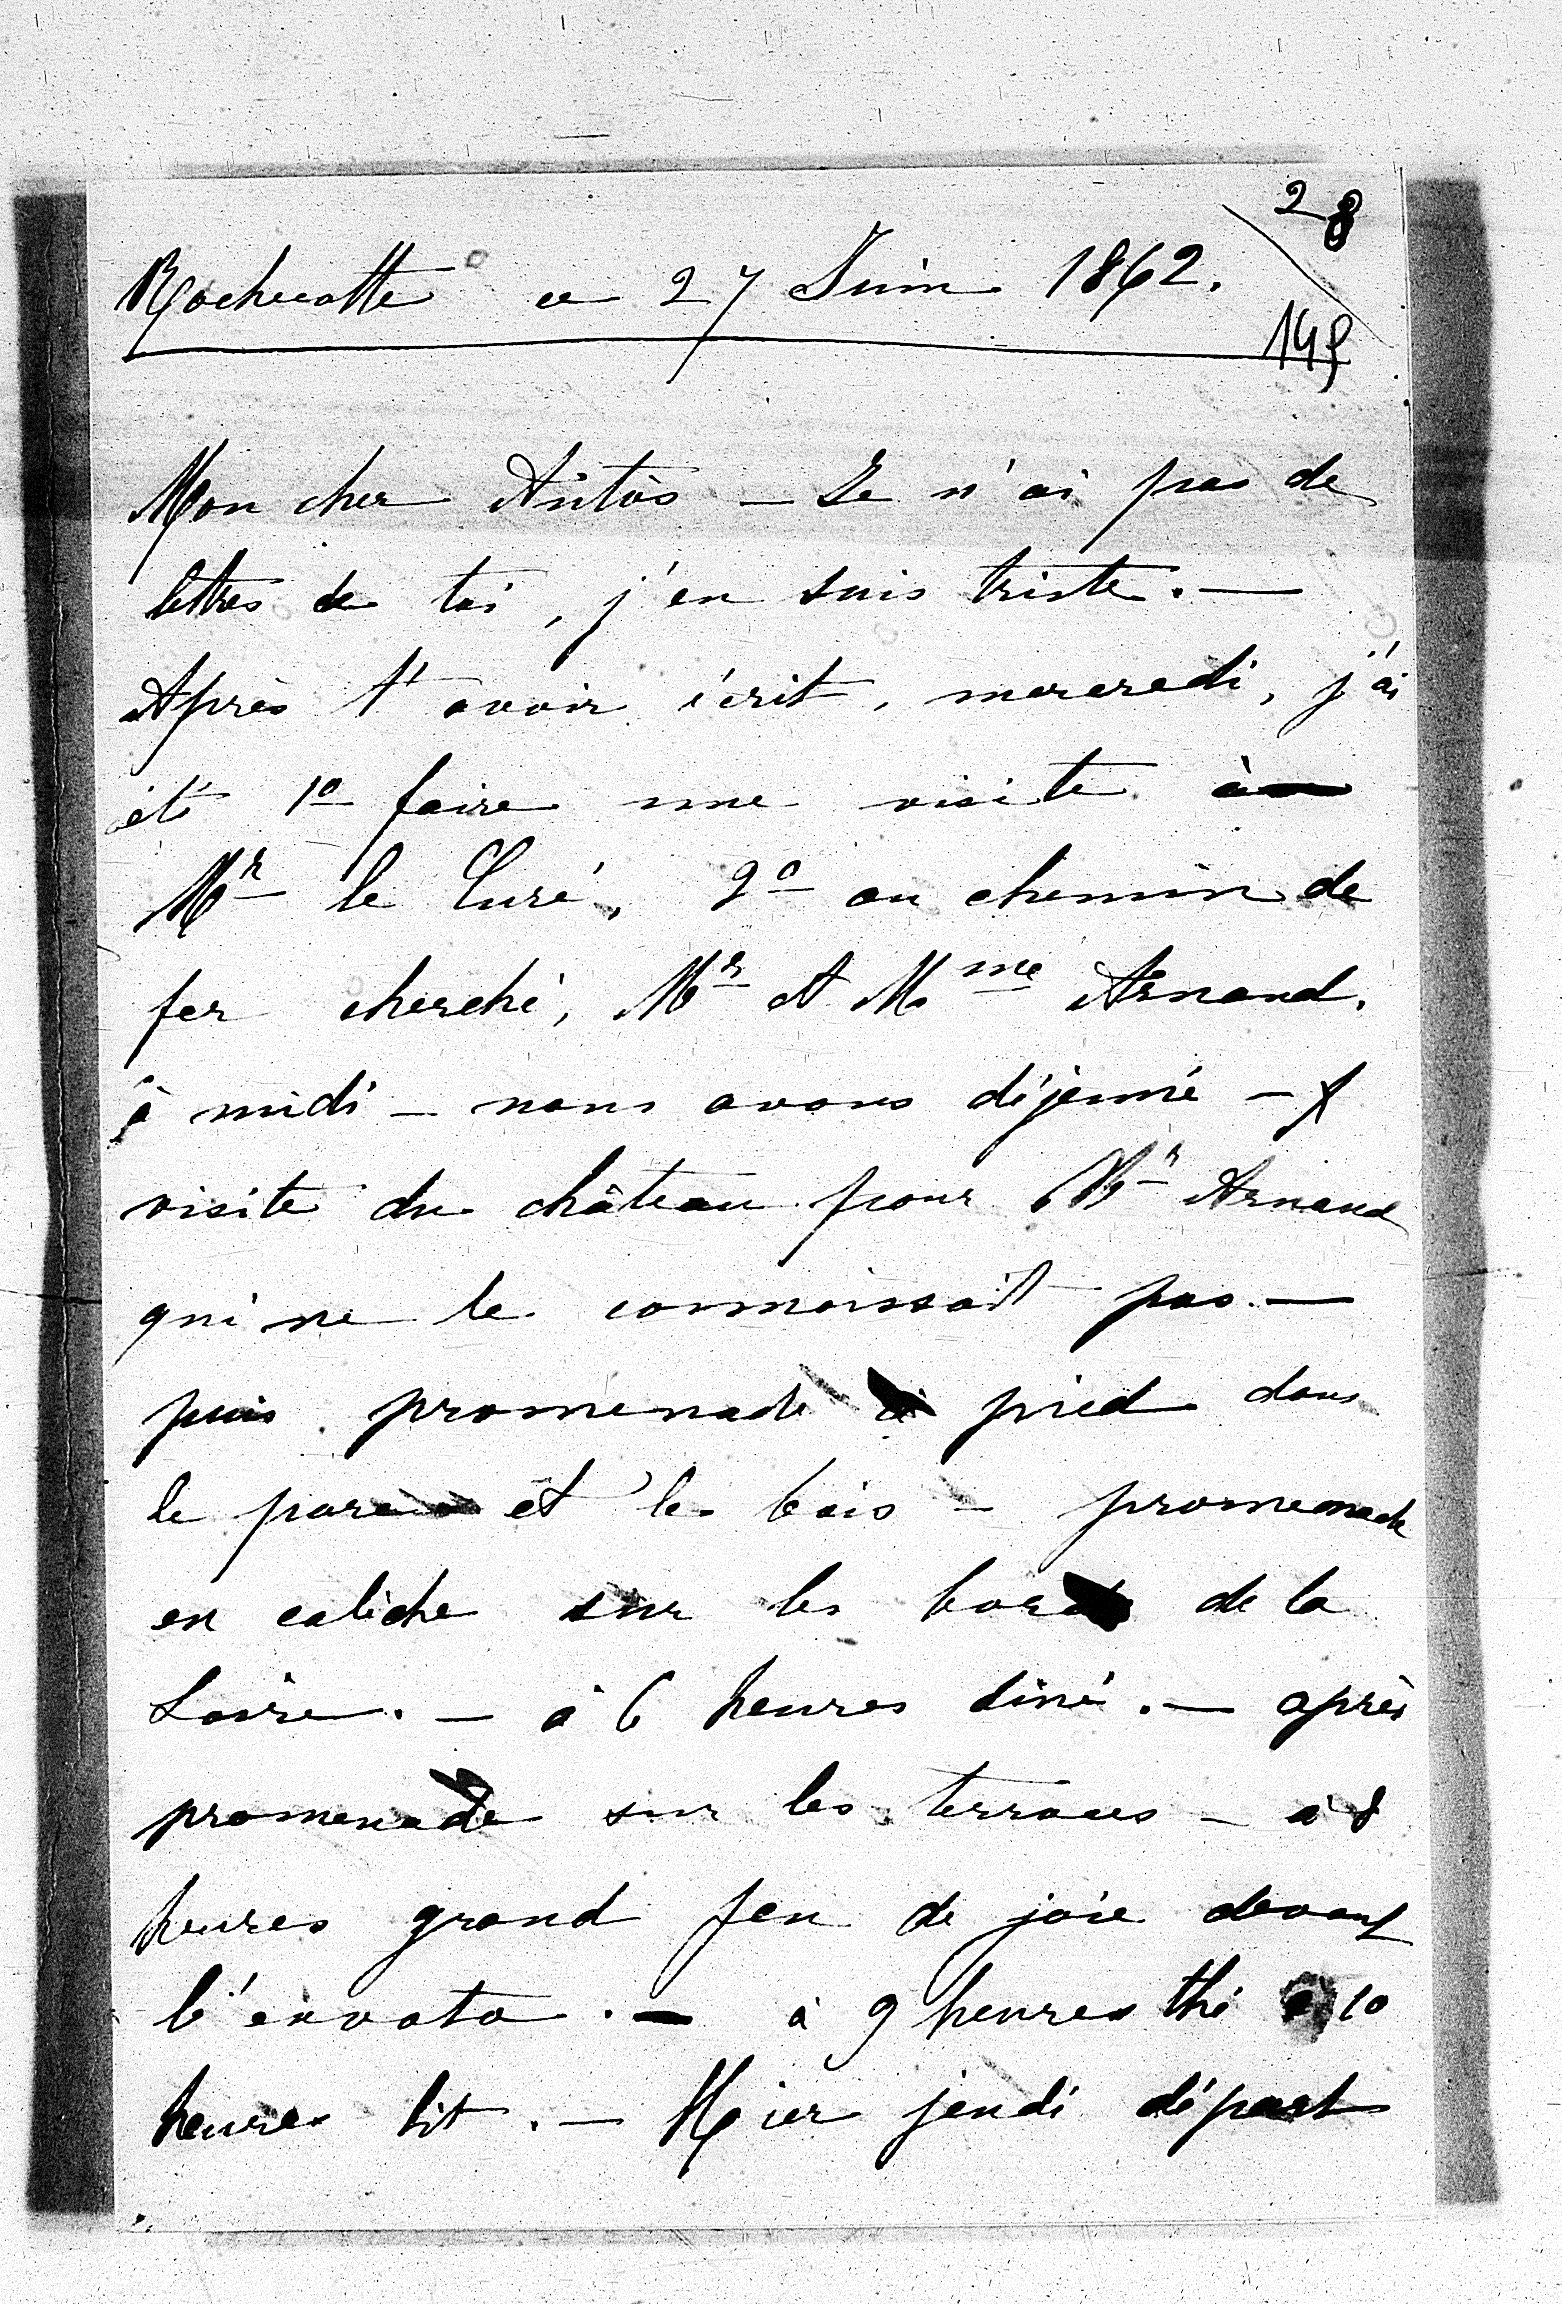 28
Rochecotte ce 27 Juin 1862.
149
Mon cher Antòs – Je n'ai pas de
lettres de toi, j'en suis triste. –
Après t'avoir écrit, mercredi, j'ai
été 1º faire une visite à
Mr le Curé, 2º au chemin de
fer cherché, Mr et Mme Arnaud.
à midi – nous avons déjeuné –
visite du château pour Mr Arnaud
qui ne le connaissait pas. –
puis promenade à pied dans
le parc et les bois – promenade
en calèche sur les bords de la
Loire. – à 6 heures diné. – après
promenade sur les terraces – à 8
heures grand feu de joie devant
à 9 heures thé à 10
heures lit. – Hier jeudi départ